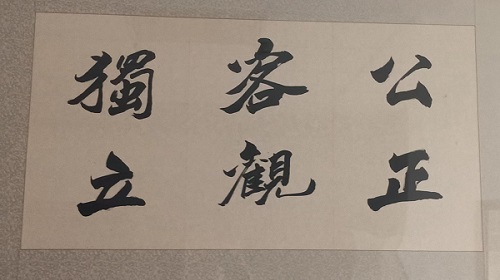 公正
客觀
獨立